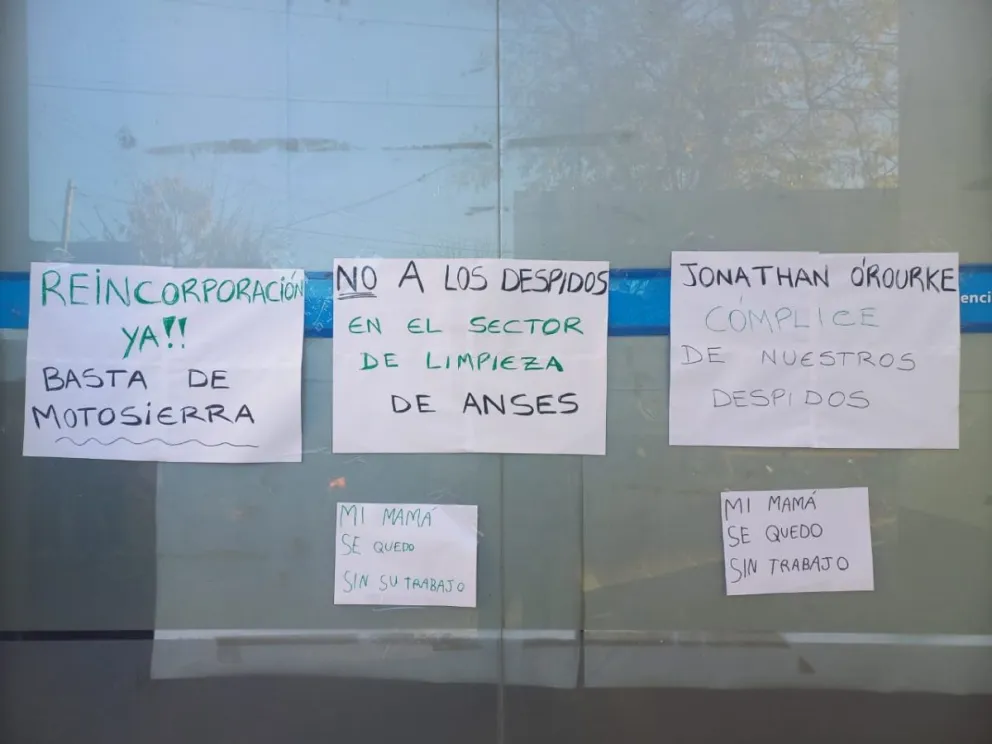 REINCORPORACIÓN
YA!!
BASTA DE
MOTOSIERRA
NO A LOS DESPIDOS
EN EL SECTOR
DE LIMPIEZA
DE ANSES
JONATHAN O'ROURKE
CÓMPLICE
DE NUESTROS
DESPIDOS
enci
MI MAMÁ
SE QUEDO
SIN SU TRABAJO
MI MAMÁ
SE QUEDO
SIN TRABAJO